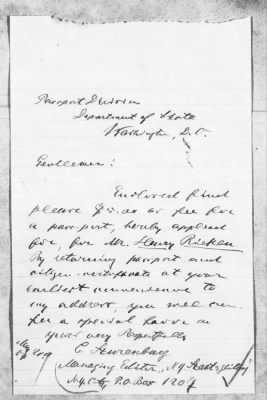 Passport Division
Department of State
Washington, D.C.
Gentlemen:
Enclosed find
please as fee for
a passport, hereby applied
for, for Mr. Henry
By returning passport and
citizen-certificate at your
earliest convenience to
my address, you will con-
fer a special favor on
yours very Respectfully
Managing Editor, "N.Y.
N.Y. City P.O. Box 1207